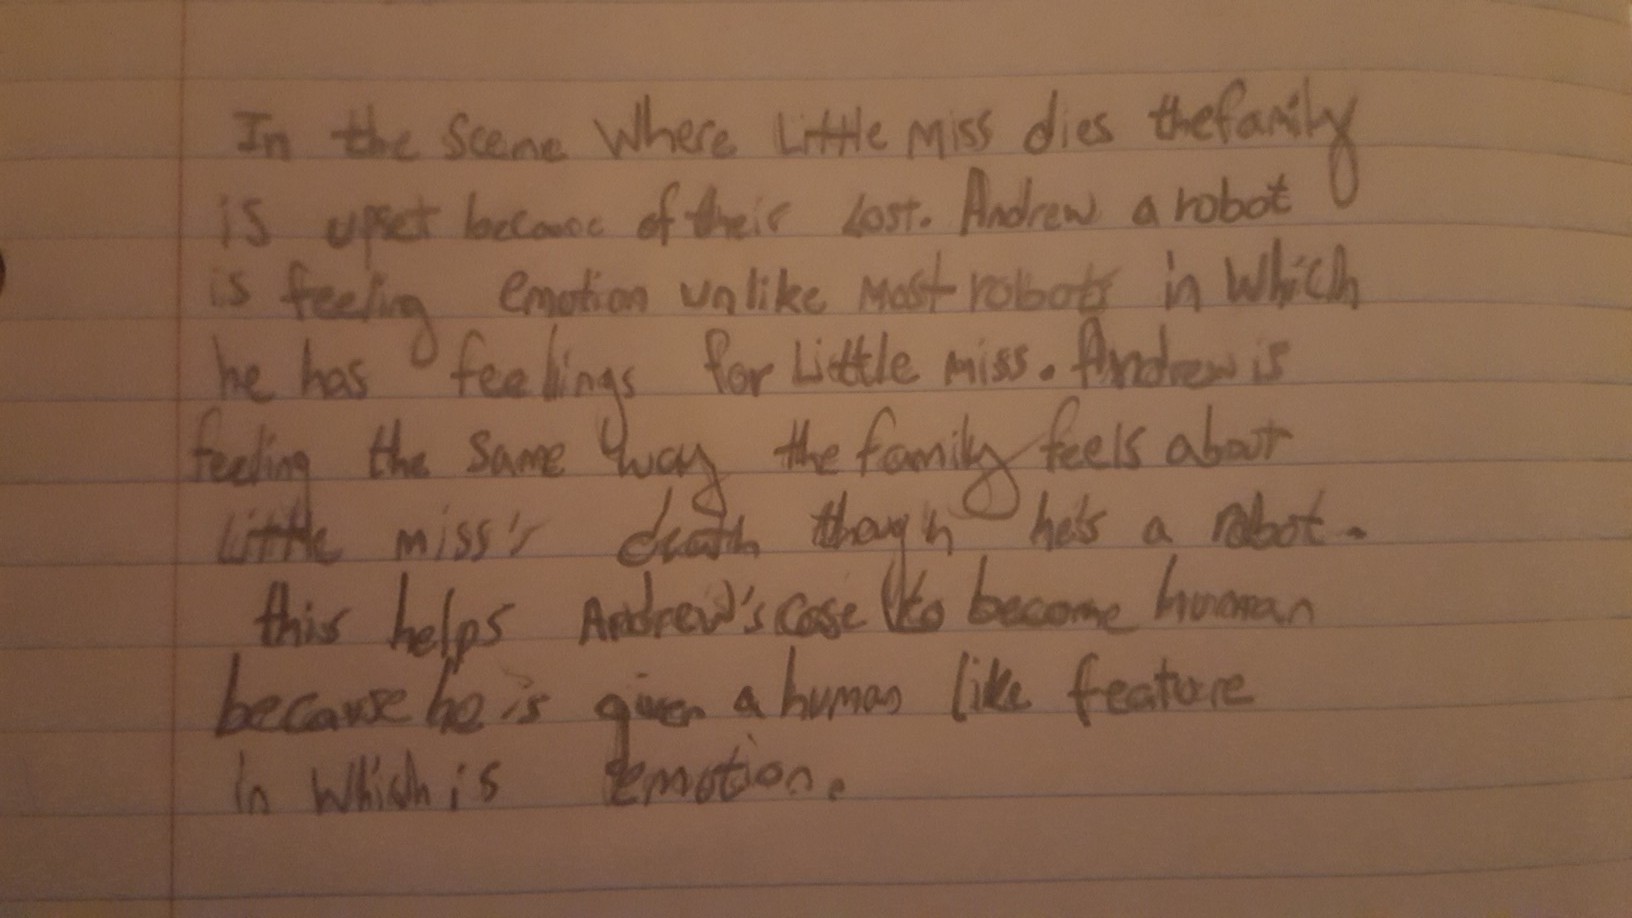 In the scene where Little Miss dies the family
is upset because of their Lost. Andrew a robot
is feeling emotion unlike most robots in which
he has feelings for Little miss. Andrew is
feeling the same way the family feels about
Little miss's death though he's a robot.
this helps Andrew's case to become human
because he is given a human like feature
in which is emotion.